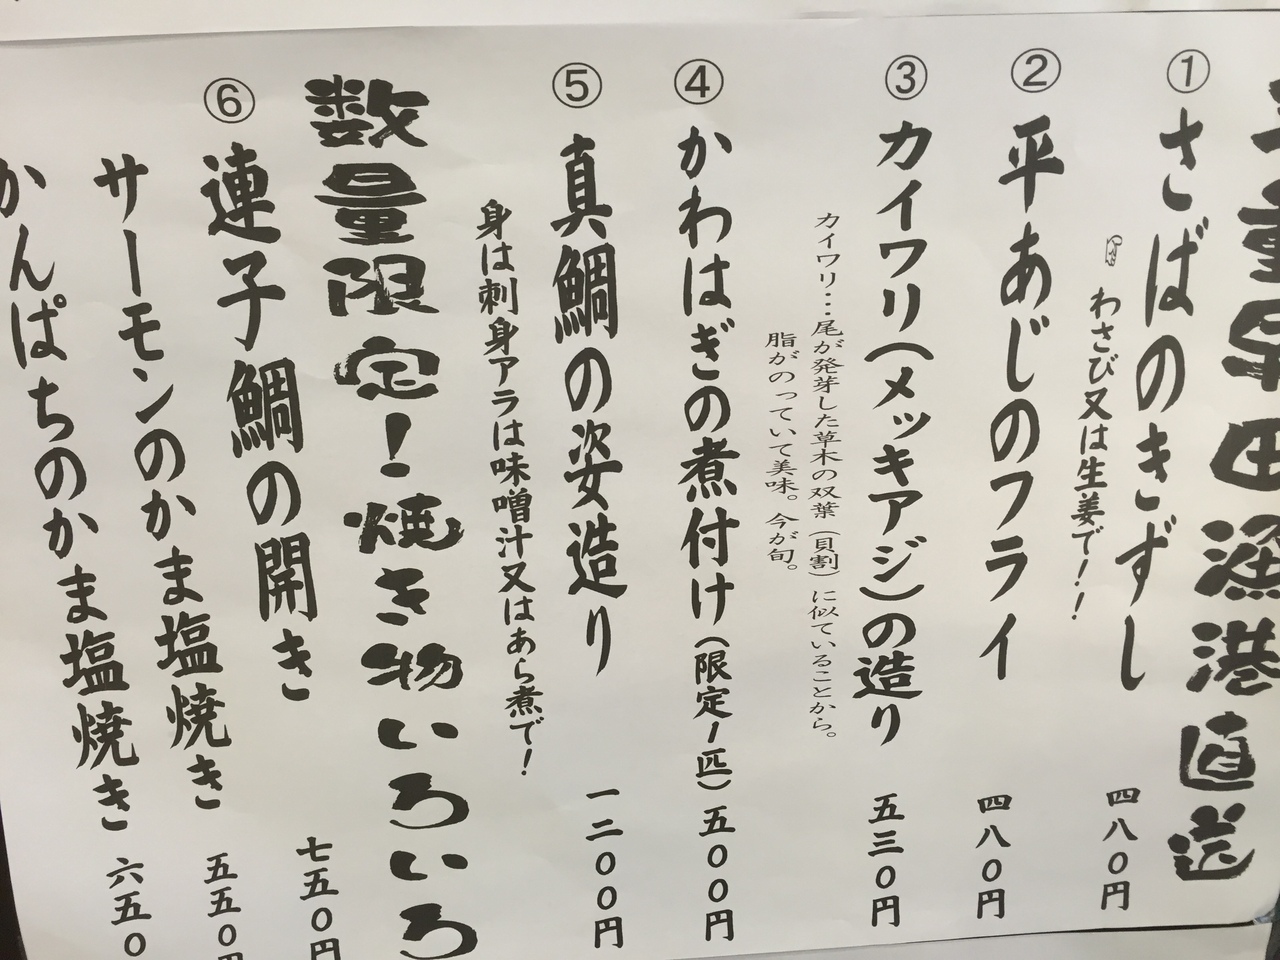 早田漁港直送
① さばのきずし 四八〇円
わさび又は生姜で！！
② 平あじのフライ 四八〇円
③ カイワリ（メッキアジ）の造り 五三〇円
カイワリ…尾が発芽した草木の双葉（貝割）に似ていることから。
脂がのっていて美味。今が旬。
④ かわはぎの煮付け（限定１匹）五〇〇円
⑤ 真鯛の姿造り 一二〇〇円
身は刺身アラは味噌汁又はあら煮で！
数量限定！焼き物いろいろ
⑥ 連子鯛の開き 七五〇円
サーモンのかま塩焼き 五五〇円
かんぱちのかま塩焼き 六五〇